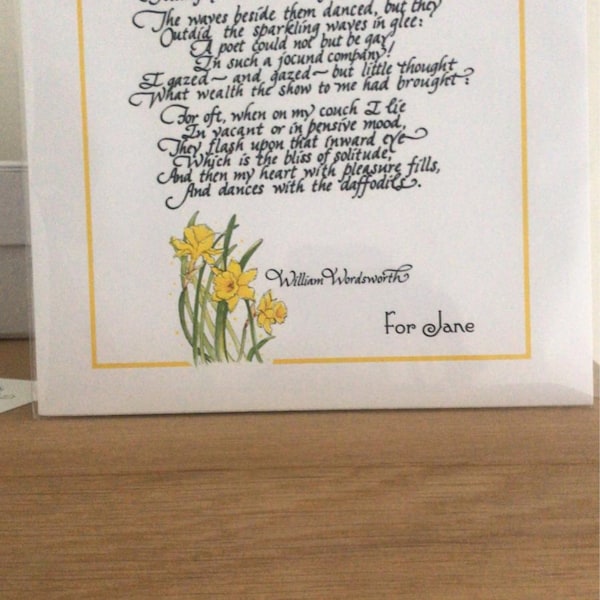 The waves beside them danced, but they
Outdid the sparkling waves in glee:
A poet could not but be gay
In such a jocund company!
I gazed~ and gazed~ but little thought
What wealth the show to me had brought:
For oft, when on my couch I lie
In vacant or in pensive mood,
They flash upon that inward eye
Which is the bliss of solitude;
And then my heart with pleasure fills,
And dances with the daffodils.
William Wordsworth
For Jane